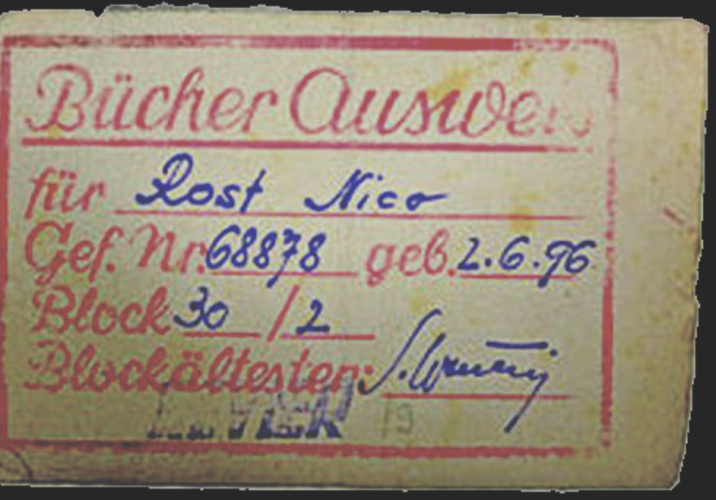 Bücher Ausweis
für Rost Nico
Gef. Nr. 68878 geb. 2.6.96
Block 30 / 2
Blockältester: